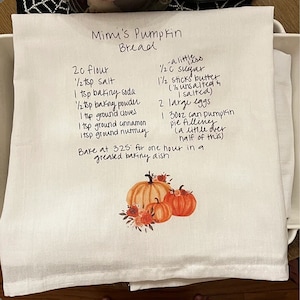 Mimi's Pumpkin
Bread
2c flour
1/2 tsp salt
1 tsp baking soda
1/2 tsp baking powder
1 tsp ground cloves
1 tsp ground cinnamon
1 tsp ground nutmeg
a little less
1/2 c sugar
1 1/2 sticks butter
(1 unsalted &
1 salted)
2 large eggs
1 30oz can pumpkin
pie filling
(a little over
half of this)
Bake at 325° for one hour in a
greased baking dish